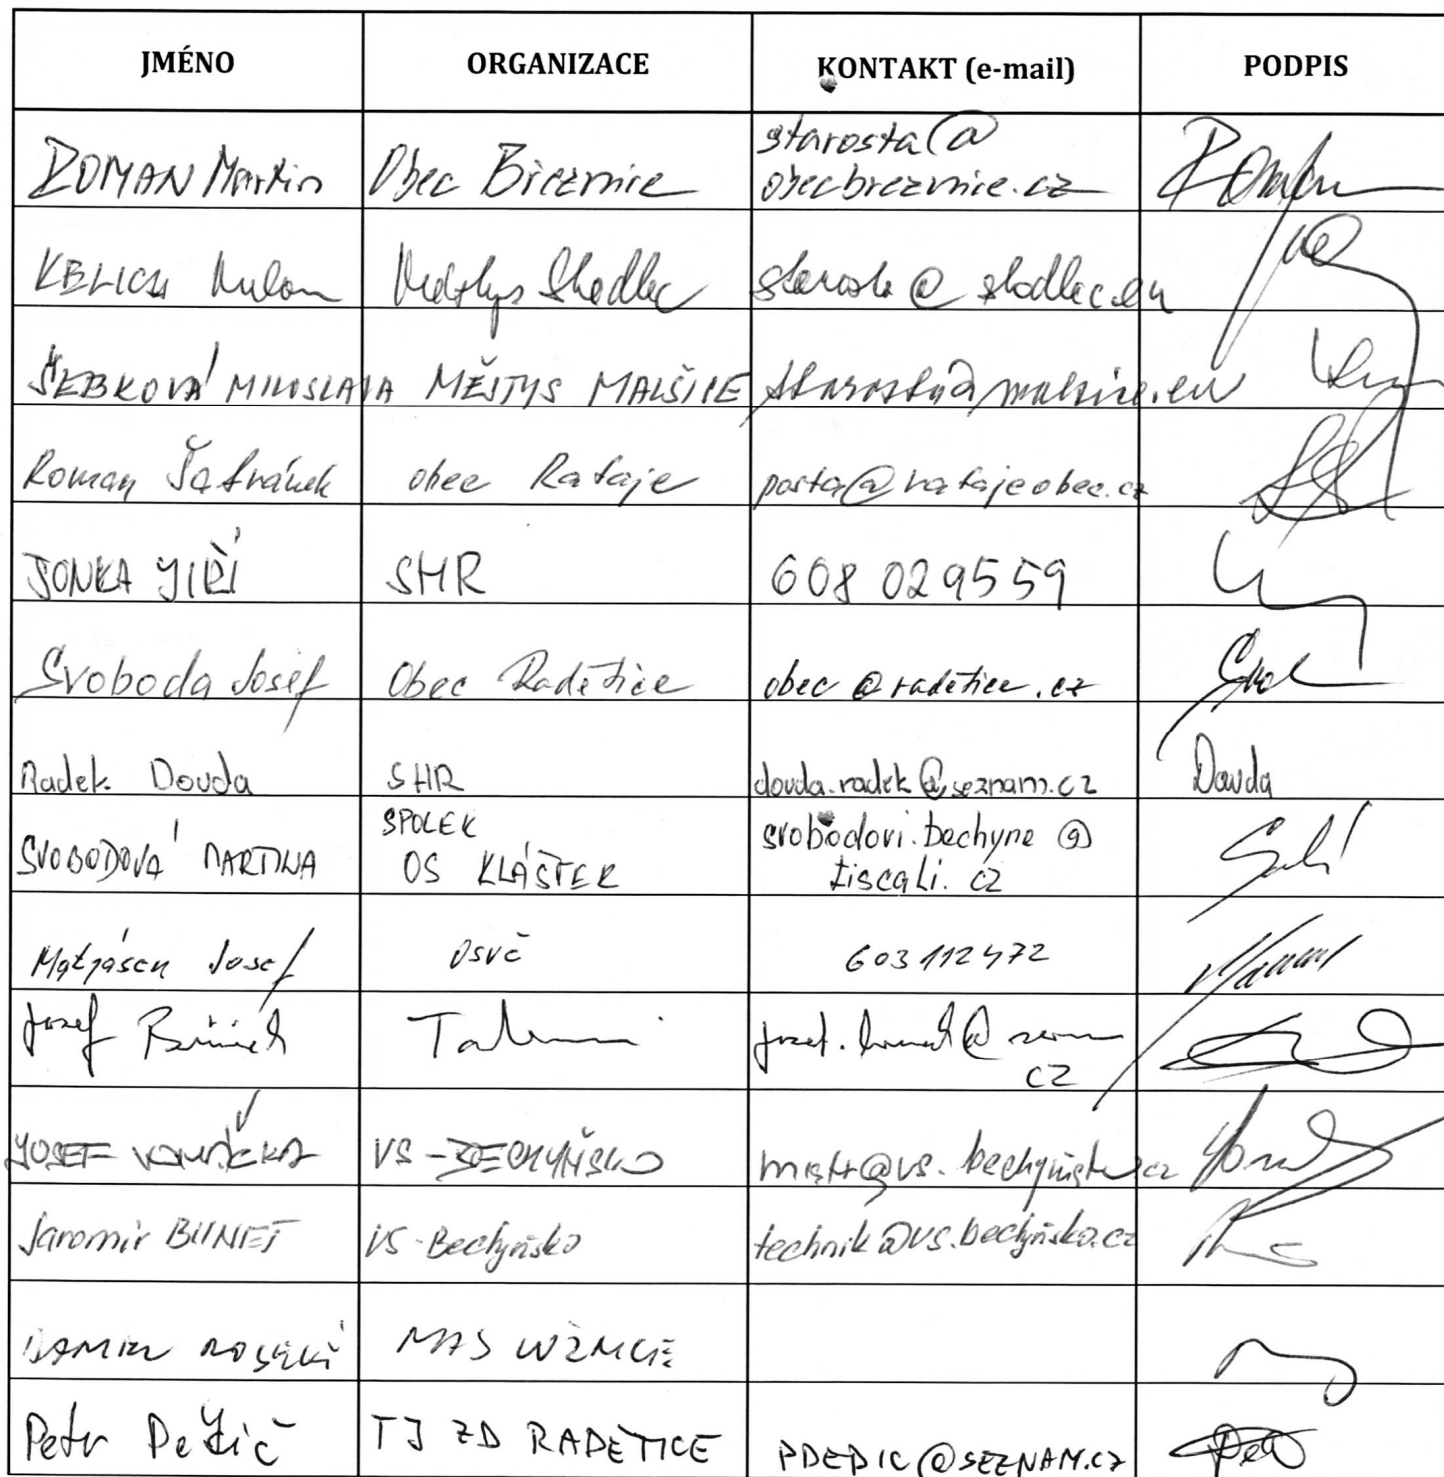 JMÉNO ORGANIZACE KONTAKT (e-mail) PODPIS
ROMAN Martin Obec Březnice starosta@
obecbreznice.cz
KELICH Milan Městys Sudoměřice
ŠEBKOVÁ MILOSLAVA MĚSTYS MALŠICE starosta@malsice.eu
Roman Šafránek obec Rataje posta@ratajeobec.cz
JONKA JIŘÍ SHR 608 029559
Svoboda Josef Obec Radětice obec@radetice.cz
Radek Douda SHR douda.radek@seznam.cz Douda
SVOBODOVÁ MARTINA SPOLEK
OS KLÁŠTER svobodovi.bechyne@
tiscali.cz
Josef OSVČ 603 112472
Josef
CZ
JOSEF VS-BECHYŇSKO
Jaromír VS-Bechyňsko technik@vs.bechynsko.cz
MAS LUŽNICE
Petr Dědič TJ ZD RADĚTICE PDEDIC@SEZNAM.CZ